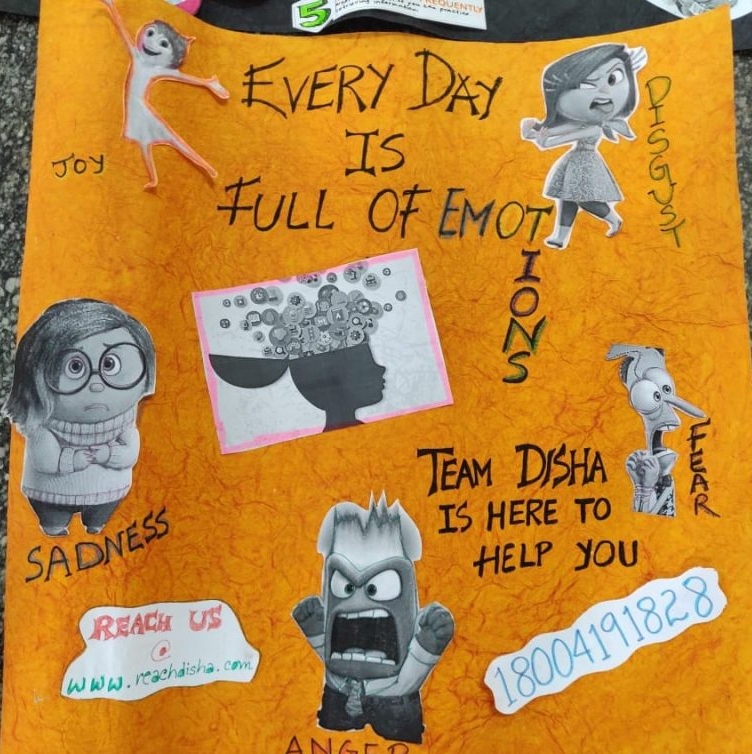 5
FREQUENTLY
you can practice
retrieving information.
EVERY DAY
IS
FULL OF EMOTIONS
JOY
DISGUST
SADNESS
FEAR
TEAM DISHA
IS HERE TO
HELP YOU
REACH US
@
www.reachdisha.com
18004191828
ANGER